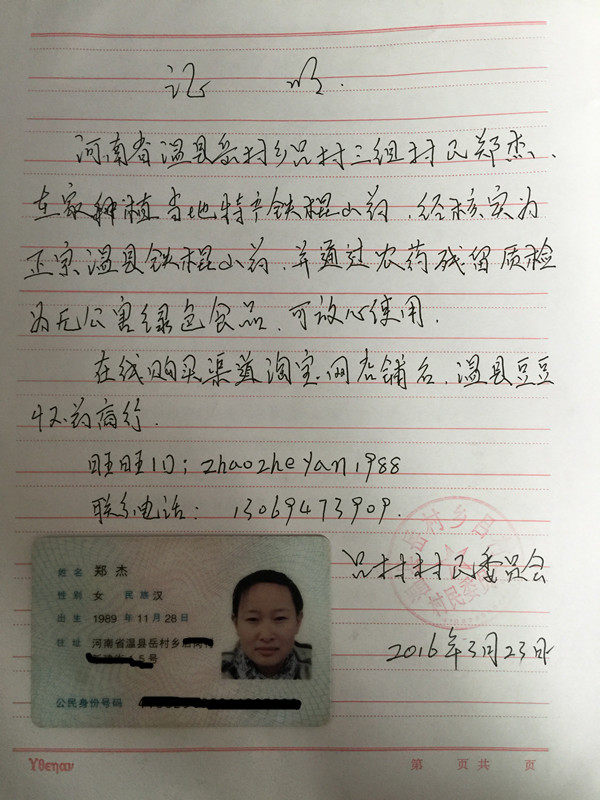 证 明.
河南省温县岳村乡吕村三组村民郑杰、
在家种植当地特产铁棍山药.经核实为
正宗温县铁棍山药.并通过农药残留质检
为无公害绿色食品.可放心使用.
在线购买渠道淘宝网店铺名.温县豆豆
怀药商行.
旺旺ID:zhaozheyan1988
联系电话: 13069473909.
吕村村民委员会
2016年3月23日
姓名 郑杰
性别 女 民族 汉
出生 1989年11月28日
住址 河南省温县岳村乡
号
公民身份号码
村民委
Yθεηαν
第 页 共 页